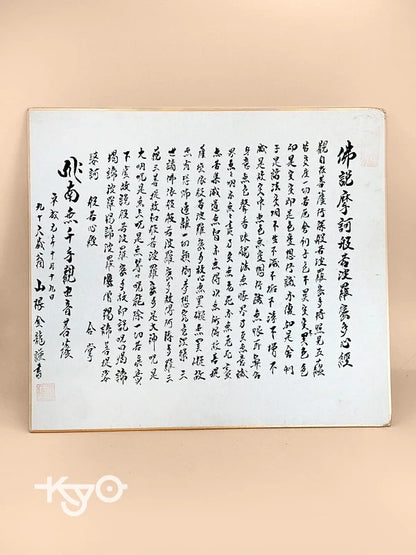 佛説摩訶般若波羅蜜多心經
觀自在菩薩行深般若波羅蜜多時照見五蘊
皆空度一切苦厄舍利子色不異空空不異色色
即是空空即是色受想行識亦復如是舍利
子是諸法空相不生不滅不垢不淨不増不
減是故空中無色無受想行識無眼耳鼻舌
身意無色聲香味觸法無眼界乃至無意識
界無無明亦無無明盡乃至無老死亦無老死盡
無苦集滅道無智亦無得以無所得故菩提
薩埵依般若波羅蜜多故心無罣礙無罣礙故
無有恐怖遠離一切顛倒夢想究竟涅槃三
世諸佛依般若波羅蜜多故得阿耨多羅三
藐三菩提故知般若波羅蜜多是大神呪是
大明呪是無上呪是無等等呪能除一切苦真實
不虚故説般若波羅蜜多呪即説呪曰羯諦
羯諦波羅羯諦波羅僧羯諦菩提娑
婆訶 般若心經 合掌
南無千手觀世音菩薩
平成元年十月十九日
九十六歳翁 山根金龍謹書
KYO